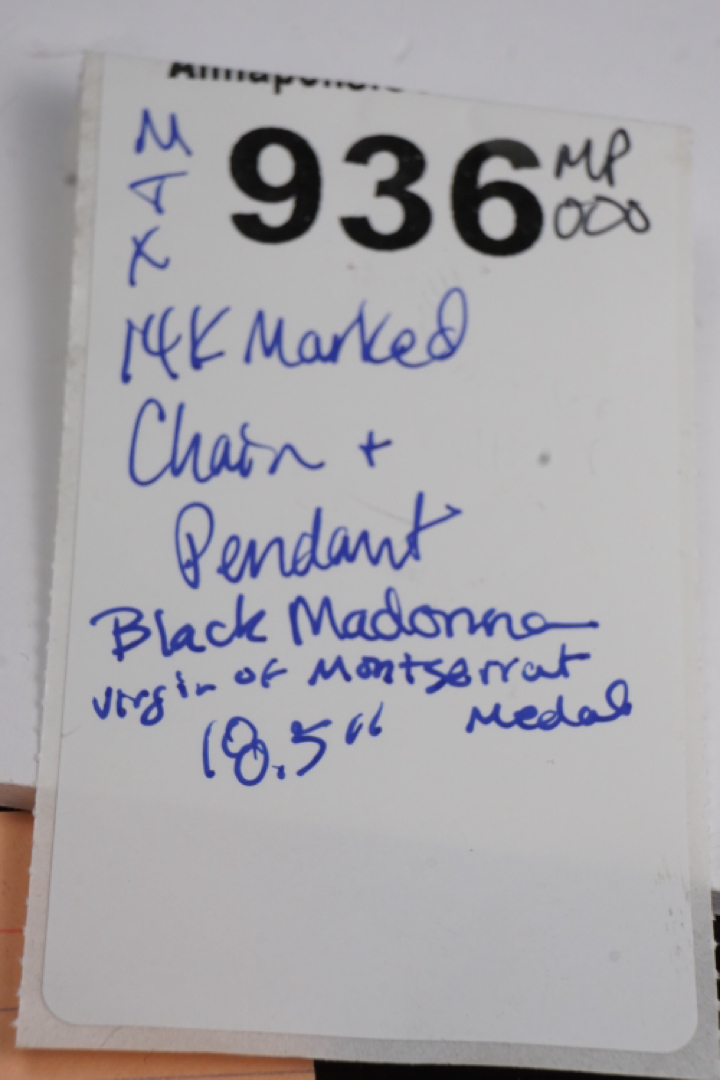 936
MP
000
M
T
X
14K Marked
Chain +
Pendant
Black Madonna
Virgin of Montserrat
Medal
18.5"